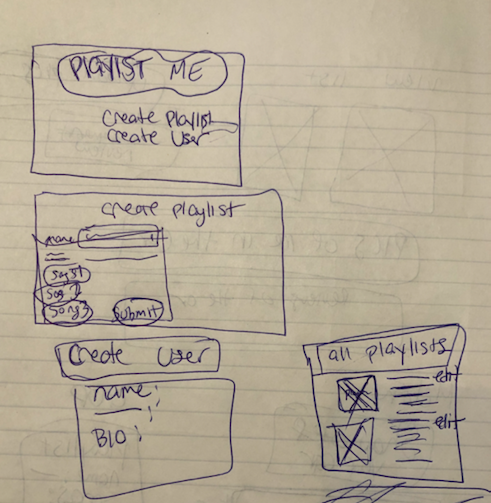 PlAYLIST ME
Create Playlist
Create User
Create playlist
name
Song 1
Song 2
Song 3
Submit
Create User
name:
BIO:
all playlists
edit
edit